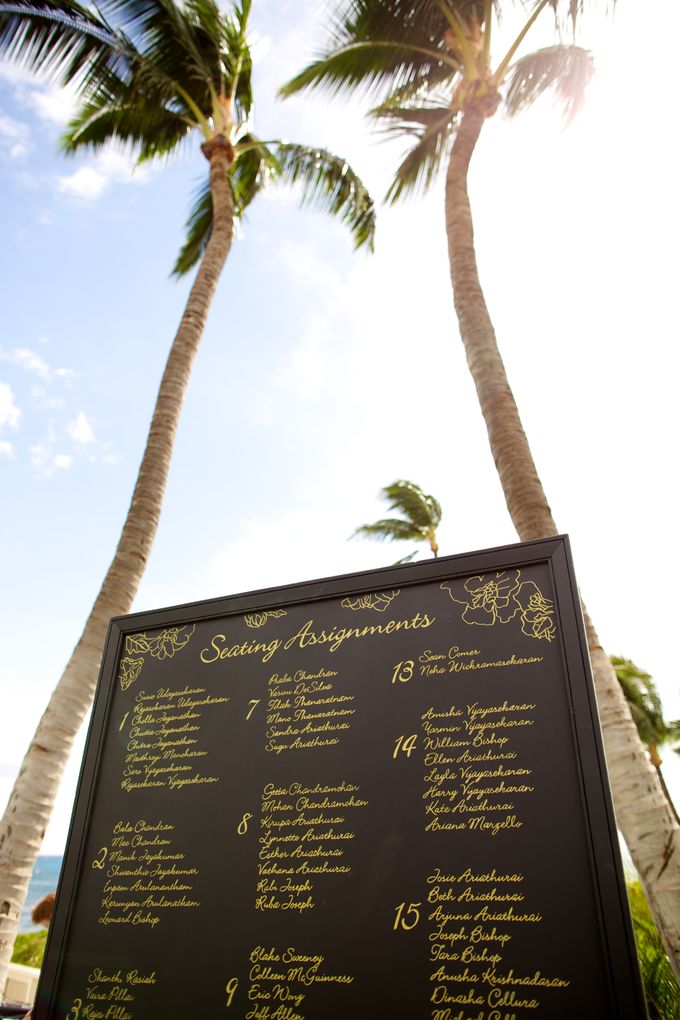 Seating Assignments
1
Saro Udayasekaran
Rajasekaran Udayasekaran
Chella Jeyanathan
Chutta Jeyanathan
Chitra Jeyanathan
Maithreyi Manoharan
Saro Vijayasekaran
Rajasekaran Vijayasekaran
2
Bala Chandran
Mae Chandran
Manik Jayakumar
Shirenthie Jayakumar
Inpam Arulanantham
Karunyan Arulanatham
Leonard Bishop
3
Shanthi Rasiah
Vaira Pillai
Rajes Pillai
7
Praba Chandran
Varini DeSilva
Tilah Thanaratnam
Mano Thanaratnam
Sandra Ariathurai
Sugu Ariathurai
8
Geeta Chandramohan
Mohan Chandramohan
Kirupa Ariathurai
Lynnette Ariathurai
Esther Ariathurai
Vathana Ariathurai
Rabi Joseph
Ruba Joseph
9
Blake Sweney
Colleen McGuinness
Eric Wong
Jeff Allen
13
Sean Comer
Neha Wickramasekaran
14
Amisha Vijayasekaran
Yasmin Vijayasekaran
William Bishop
Ellen Ariathurai
Layla Vijayasekaran
Harry Vijayasekaran
Kate Ariathurai
Ariana Marzello
15
Josie Ariathurai
Beth Ariathurai
Arjuna Ariathurai
Joseph Bishop
Tara Bishop
Anusha Krishnadasan
Dinasha Cellura
Michael Cellura